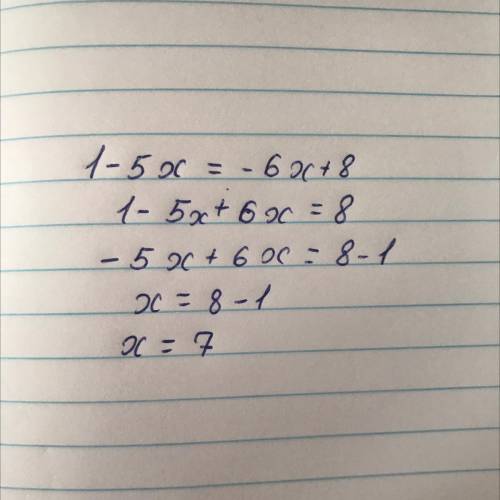 1 - 5x = - 6x + 8
1 - 5x + 6x = 8
- 5x + 6x = 8 - 1
x = 8 - 1
x = 7